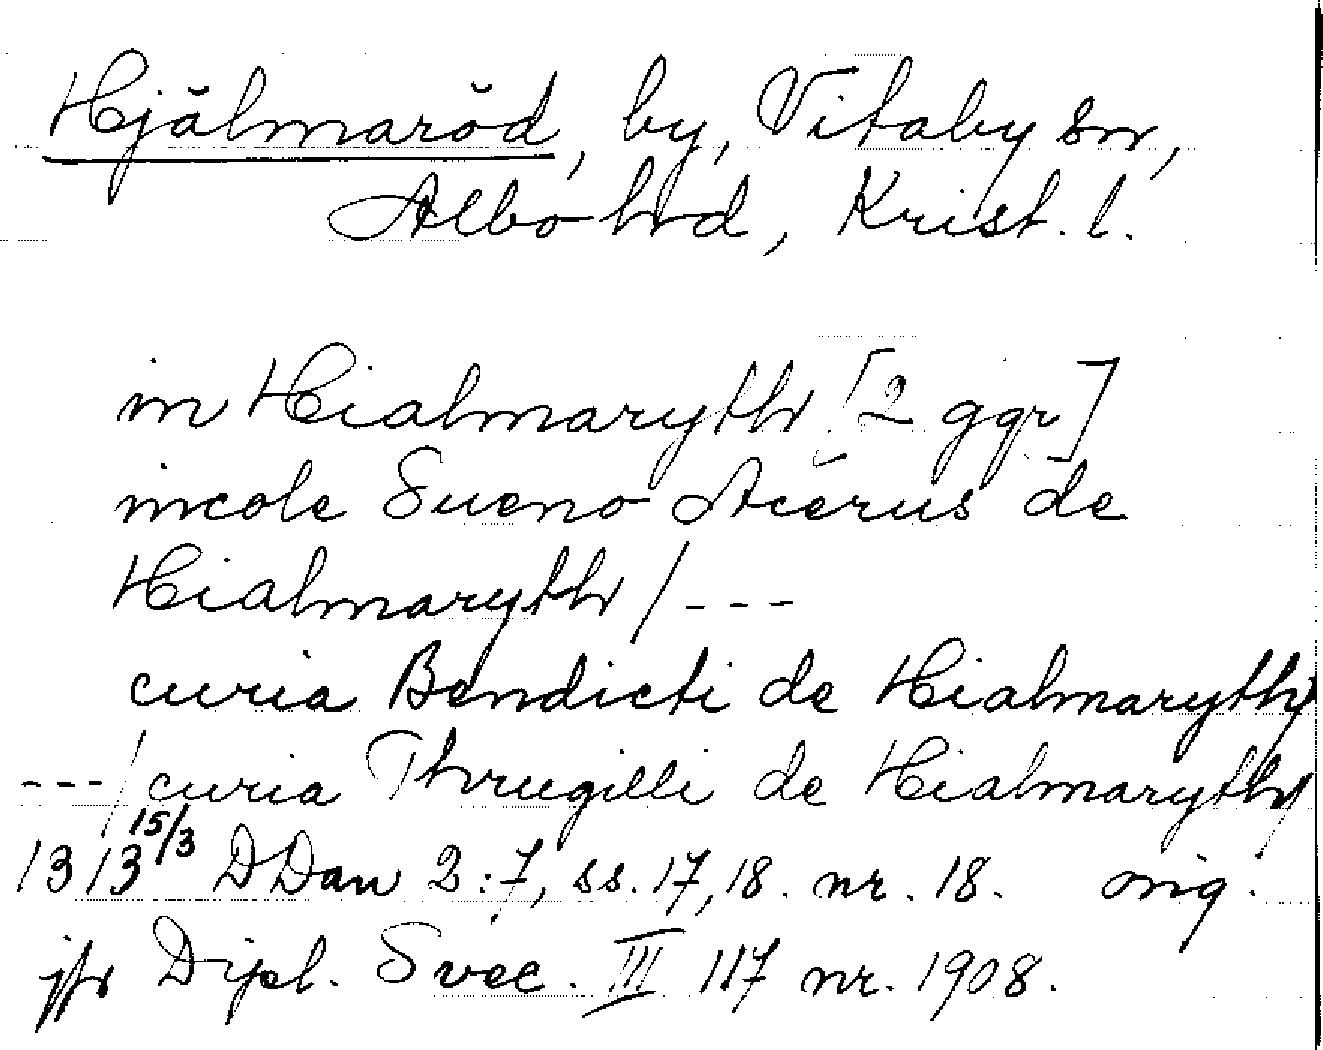 Hjälmaröd, by, Vitaby sn,
Albo hrd, Krist. l.
in Hialmaryth [2 ggr]
incole Sueno Acerus de
Hialmaryth / ---
curia Bendicti de Hialmaryth
--- / curia Thrugilli de Hialmaryth /
1313 15/3 DDan 2:7, ss. 17, 18. nr. 18. orig.
jfr Dipl. Svec. III 117 nr. 1908.